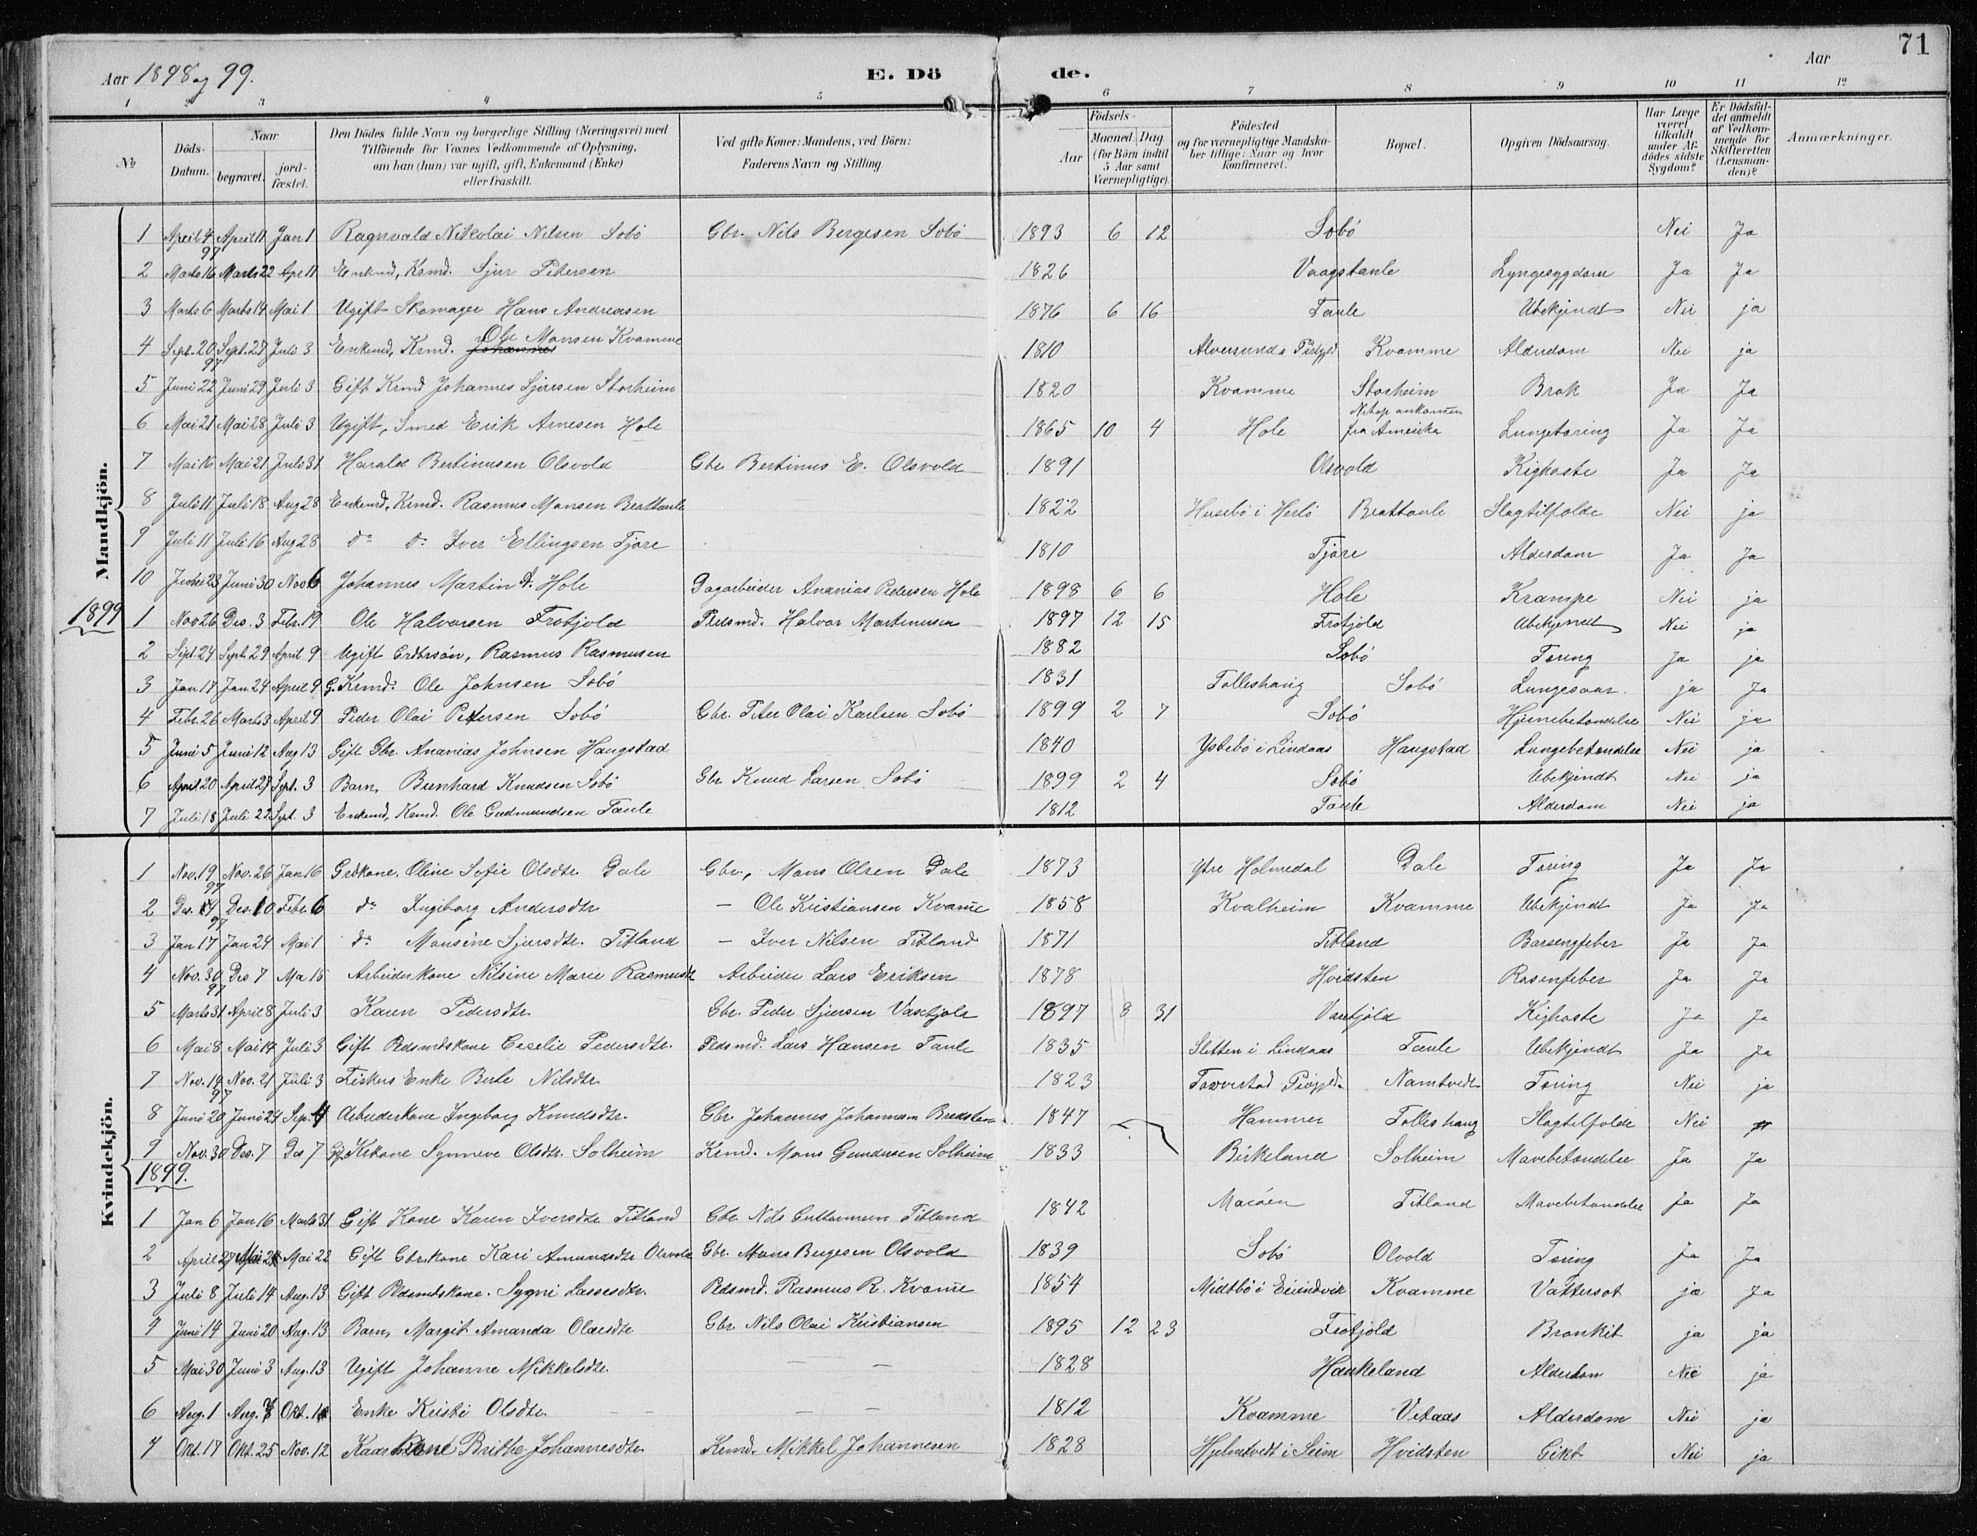 Aar 1898 og 99. E. Dö de. Aar 71
1 2 3 4 5 6 7 8 9 10 11 12
№ Döds-Datum. Naar begravet. jordfæstet. Den Dödes fulde Navn og borgerlige Stilling (Næringsvei) med Tilföiende for Voxnes Vedkommende af Oplysning, om han (hun) var ugift, gift, Enkemand (Enke) eller fraskilt. Ved gifte Koner: Mandens, ved Börn: Faderens Navn og Stilling. Födsels- Aar Maaned Dag (for Börn indtil 5 Aar samt Værnepligtige). Födested og for værnepligtige Mandskaber tillige: Naar og hvor konfirmeret. Bopæl. Opgiven Dödsaarsag. Har Læge været tilkaldt under Afdödes sidste Sygdom? Er Dödsfaldet anmeldt af Vedkommende for Skifteretten (Lensmanden)? Anmærkninger.
Mandkjön.
1 April 4 97 April 11 Jan 1 Ragnvald Nikolai Nilsen Sobö Gbr. Nils Bergesen Sobö 1893 6 12 Sobö Nei Ja
2 Marts 16 Marts 22 Apr 11 Enkmd, Krmd. Sjur Petersen 1826 Vaagstaule Lyngesygdom Ja Ja
3 Marts 6 Marts 14 Mai 1 Ugift Skomager Hans Andreasen 1876 6 16 Taule Ubekjendt Nei ja
4 Sept. 20 97 Sept. 27 Juli 3 Enkmd, Krmd. Johannes Ole Monsen Kvamme 1810 Alversunds Kvamme Alderdom Nei ja
5 Juni 22 Juni 29 Juli 3 Gift Krmd Johannes Sjursen Storheim 1820 Kvamme Storheim Brok Ja Ja
6 Mai 21 Mai 28 Juli 3 Ugift, Smed Erik Arnesen Hole 1865 10 4 Hole fra Amerika Lungetæring Ja Ja
7 Mai 16 Mai 21 Juli 31 Harald Bertinusen Olsvold Gbr Bertinus E. Olsvold 1891 Olsvold Kighoste Ja Ja
8 Juli 11 Juli 18 Aug 28 Enkemd, Krmd. Rasmus Monsen Brattaule 1822 Husebö i Herlö Brattaule Slagtilfælde Nei ja
9 Juli 11 Juli 16 Aug 28 do do Iver Ellingsen Fjøre 1810 Alderdom Ja Ja
10 Juni 23 Juni 30 Nov 6 Johannes Martin A. Hole Dagarbeider Ananias Pedersen Hole 1898 6 6 Hole Krampe Nei ja
1899
1 Nov 26 Des. 3 Febr. 19 Ole Halvorsen Frotjold Pldsmd. Halvor Martinusen 1897 12 15 Frotjold Ubekjendt Nei ja
2 Sept. 24 Sept. 29 April 9 Ugift Grdbrsøn, Rasmus Rasmusen 1882 Sobö Tæring Ja ja
3 Jan 17 Jan 24 April 9 G. Krmd. Ole Johnsen Sobö 1831 Tolleshaug Sobö Lungesaar. ja Ja
4 Febr. 26 Marts 3 April 9 Peder Olai Petersen Sobö Gbr. Peter Olai Karlsen Sobö 1899 2 7 Sobö Hjernebetændelse Nei ja
5 Juni 5 Juni 12 Aug 13 Gift Gbr. Ananias Johnsen Haugstad 1840 Ystebö i Lindaas Haugstad Lungebetændelse Nei ja
6 April 20 April 27 Sept. 3 Barn, Bernhard Knudsen Sobö Gbr Knud Larsen Sobö 1899 2 4 Sobö Ubekjendt Nei ja
7 Juli 18 Juli 22 Sept. 3 Enkmd, Krmd. Ole Gudmundsen Taule 1812 Taule Alderdom Nei ja
Kvindekjön.
1 Nov. 19 97 Nov. 26 Jan 16 Grdkone. Oline Sofie Olsdtr. Dale Gbr, Mons Olsen Dale 1873 Ytre Holmedal Dale Tæring Ja Ja
2 Des. 4 97 Des. 10 Febr. 6 do Ingeborg Andersdtr. — Ole Kristiansen Kvamme 1858 Kvalheim Kvamme Ubekjendt Ja Ja
3 Jan 17 Jan 24 Mai 1 do Monsine Sjursdtr. Titland — Iver Nilsen Titland 1871 Titland Barselfeber Ja Ja
4 Nov. 30 97 Des 7 Ma 15 Arbeiderkone Nilsine Marie Rasmusdtr Arbeider Lars Eriksen 1878 Hvidsten Rosenfeber Ja Ja
5 Marts 31 April 8 Juli 3 Karen Pedersdtr. Gbr. Peder Sjursen 1897 8 31 Kighoste Ja Ja
6 Mai 8 Mai 14 Juli 3 Gift Pldsmdskone Cecelie Pedersdtr. Pldsmd. Lars Hansen Taule 1835 Sletten i Lindaas Taule Ubekjendt Ja Ja
7 Nov. 14 97 Nov. 21 Juli 3 Fiskers Enke Berte Nilsdtr. 1823 Namtvedt Tæring Nei ja
8 Juni 20 Juni 24 Sep. 4 Arbeiderkone Ingeborg Knudsdtr. Gbr Johannes Johannesen 1847 Hammer Tolleshaug Slagtilfælde Nei
9 Nov. 30 Des. 7 Des 7 Synneve Olsdtr. Solheim Krmd. Mons Gundersen Solheim 1833 Birkeland Solheim Mavebetændelse Ja Ja
1899.
1 Jan 6 Jan 16 Marts 31 Gift Kone Karen Iversdtr Titland Gbr Nils Guttormsen Titland 1842 Titland Mavebetændelse Ja Ja
2 April 27 Mai 22 Gift Gbrkone Kari Amundsdtr Olsvold Gbr. Mons Bergesen Olsvold 1839 Sobö Olvold Tæring Ja Ja
3 Juli 8 Juli 14 Aug. 13 Gift Pldsmdskone. Sygni Lassesdtr. Pldsmd. Rasmus R. Kvamme 1854 Midtbö i Eivindvik Kvamme Vattersot ja Ja
4 Juni 14 Juni 20 Aug. 13 Barn, Margit Amanda Olaisdtr Gbr Nils Olai Kristiansen 1895 12 23 Frotjold Bronkit ja ja
5 Mai 30 Juni 3 Aug. 13 Ugift Johanne Mikkelsdtr. — — 1828 Haukeland Alderdom Nei ja
6 Aug. 1 Aug. 8 Okt. 1 Enke Kristi Olsdtr. — — — — 1812 Kvamme Alderdom Nei ja
7 Okt. 17 Okt. 25 Nov. 12 Kaarkone Britte Johannesdtr. Krmd. Mikkel Johannesen 1828 Hjelmtvedt i Seim Hvidsten Gikt Nei ja